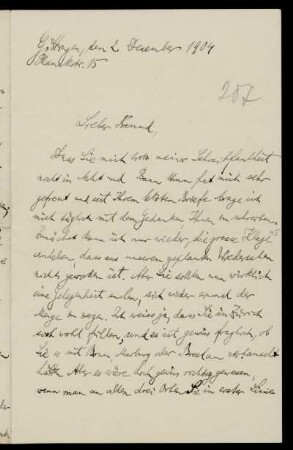 Göttingen, den 2. Dezember 1904
Planckstr. 15
207
Lieber Freund,
Dass Sie mich trotz meiner Schreibfaulheit
nicht in Acht und Bann thun, hat mich sehr
gefreut und seit Ihrem letzten Briefe trage ich
mich täglich mit dem Gedanken, Ihnen zu schreiben.
Zunächst kann ich nur wieder die grosse Klage
anheben, dass aus unserem geplanten Wiedersehen
nichts geworden ist. Aber Sie sollten nun wirklich
eine Gelegenheit suchen, sich wieder einmal der
zu sagen. Ich weiss ja, dass Sie in Zürich
sich wohl fühlen, und es ist gewiss fraglich, ob
Sie es mit Bonn, Marburg oder Breslau vertauscht
hätten. Aber es wäre doch gewiss richtig gewesen,
wenn man an allen drei Orten Sie in erster Linie